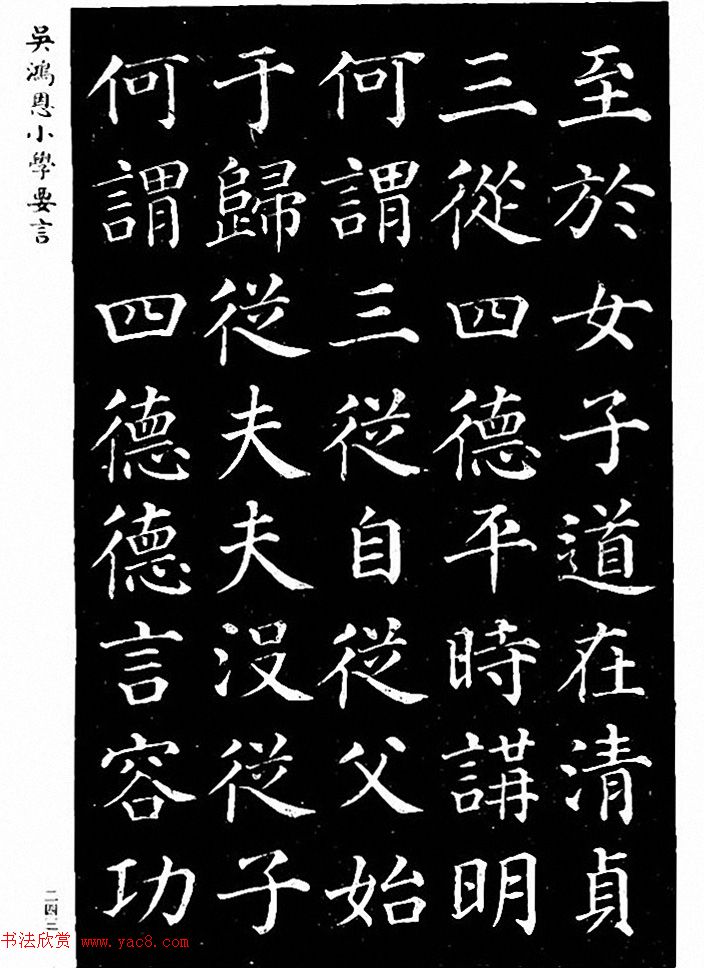 至於女子道在清貞
三從四德平時講明
何謂三從自從父始
于歸從夫夫没從子
何謂四德德言容功
吳鴻恩小學要言
二四三
书法欣赏 www.yac8.com